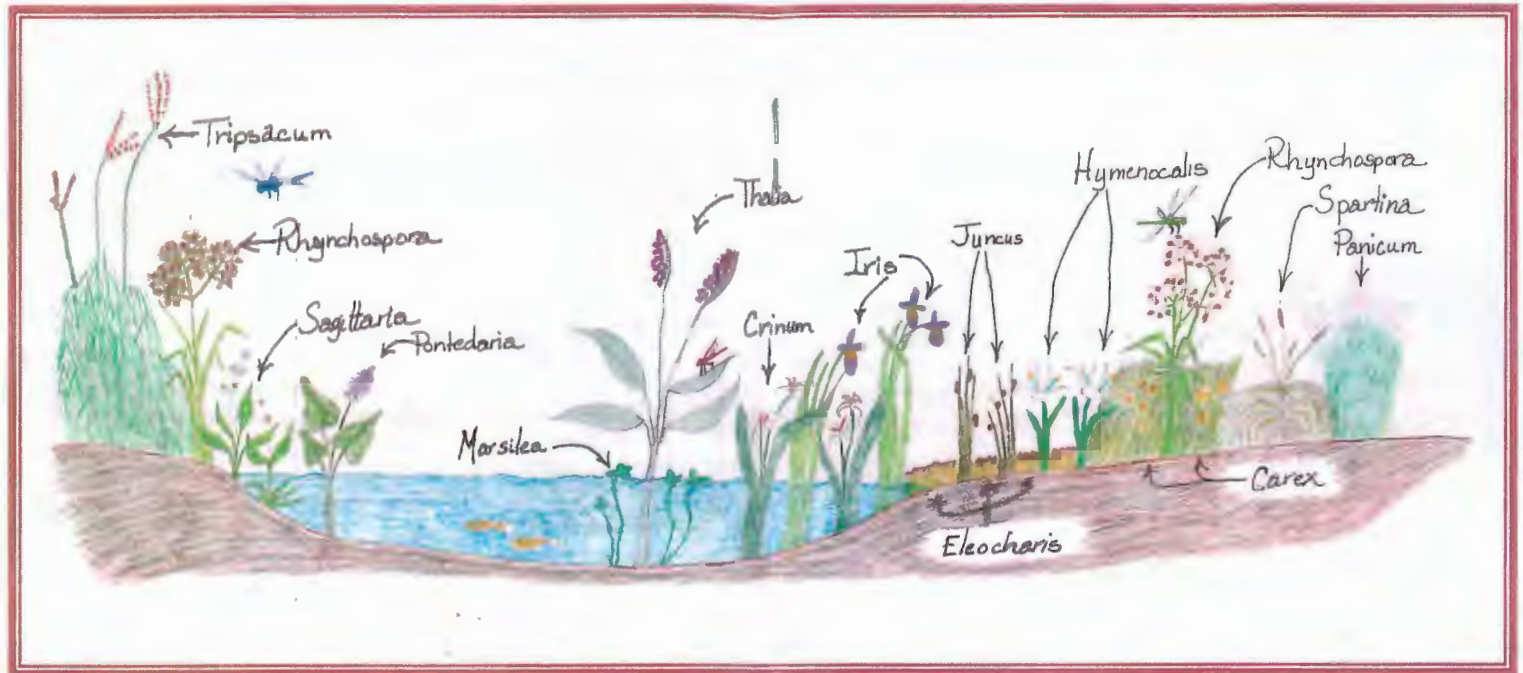 Tripsacum
Rhynchospora
Sagittaria
Pontedaria
Marsilea
Thalia
Crinum
Iris
Juncus
Hymenocalis
Rhynchospora
Spartina
Panicum
Carex
Eleocharis